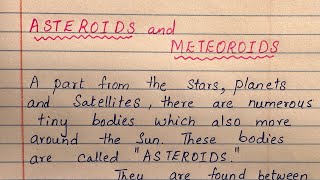 ASTEROIDS and
METEOROIDS
A part from the stars, planets
and Satellites, there are numerous
tiny bodies which also more
around the Sun. These bodies
are called "ASTEROIDS."
They are found between